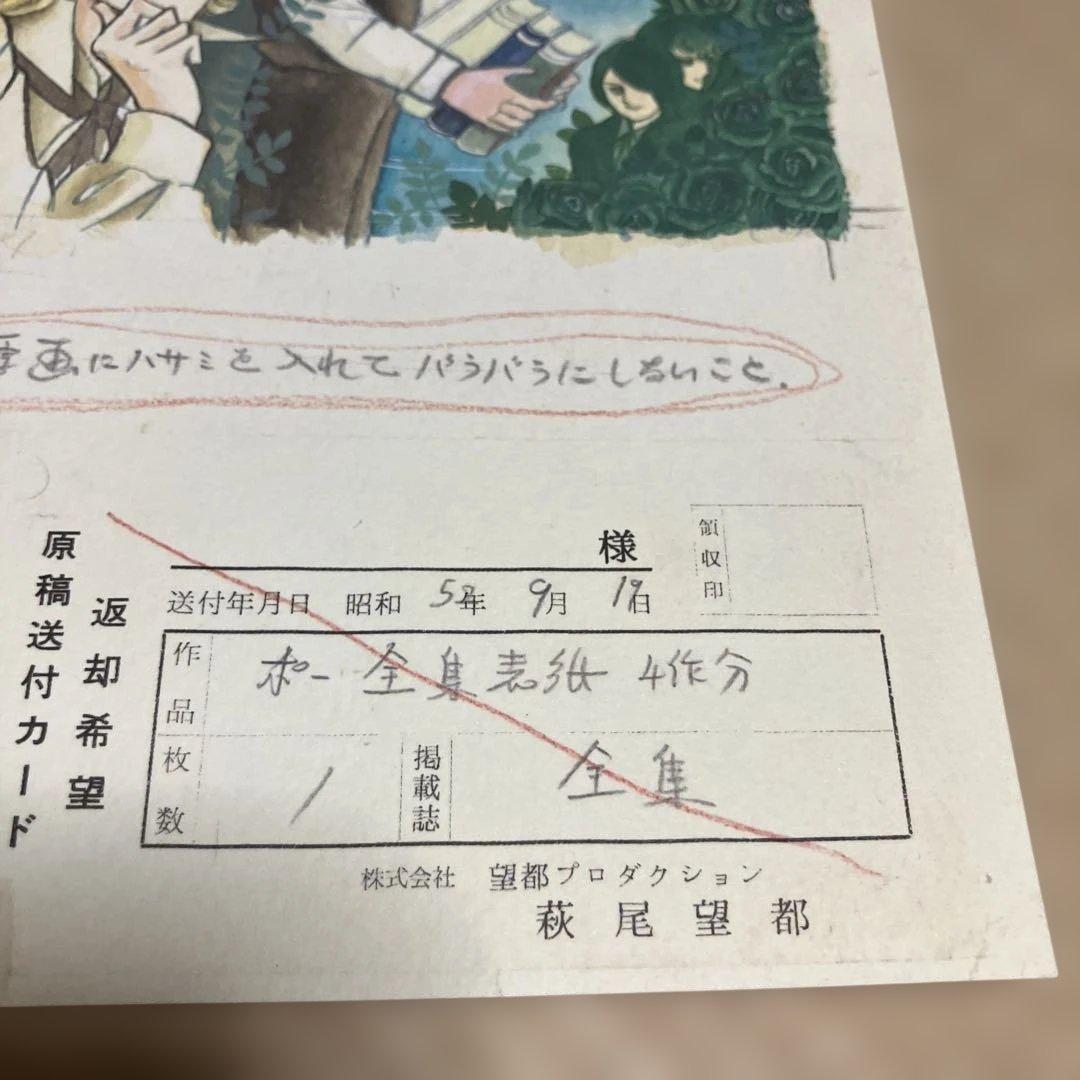 原画にハサミを入れてバラバラにしないこと.
返却希望
原稿送付カード
様
領収印
送付年月日 昭和 52年 9月 19日
作品 ポー全集表紙 4作分
枚数 1 掲載誌 全集
株式会社 望都プロダクション
萩尾望都